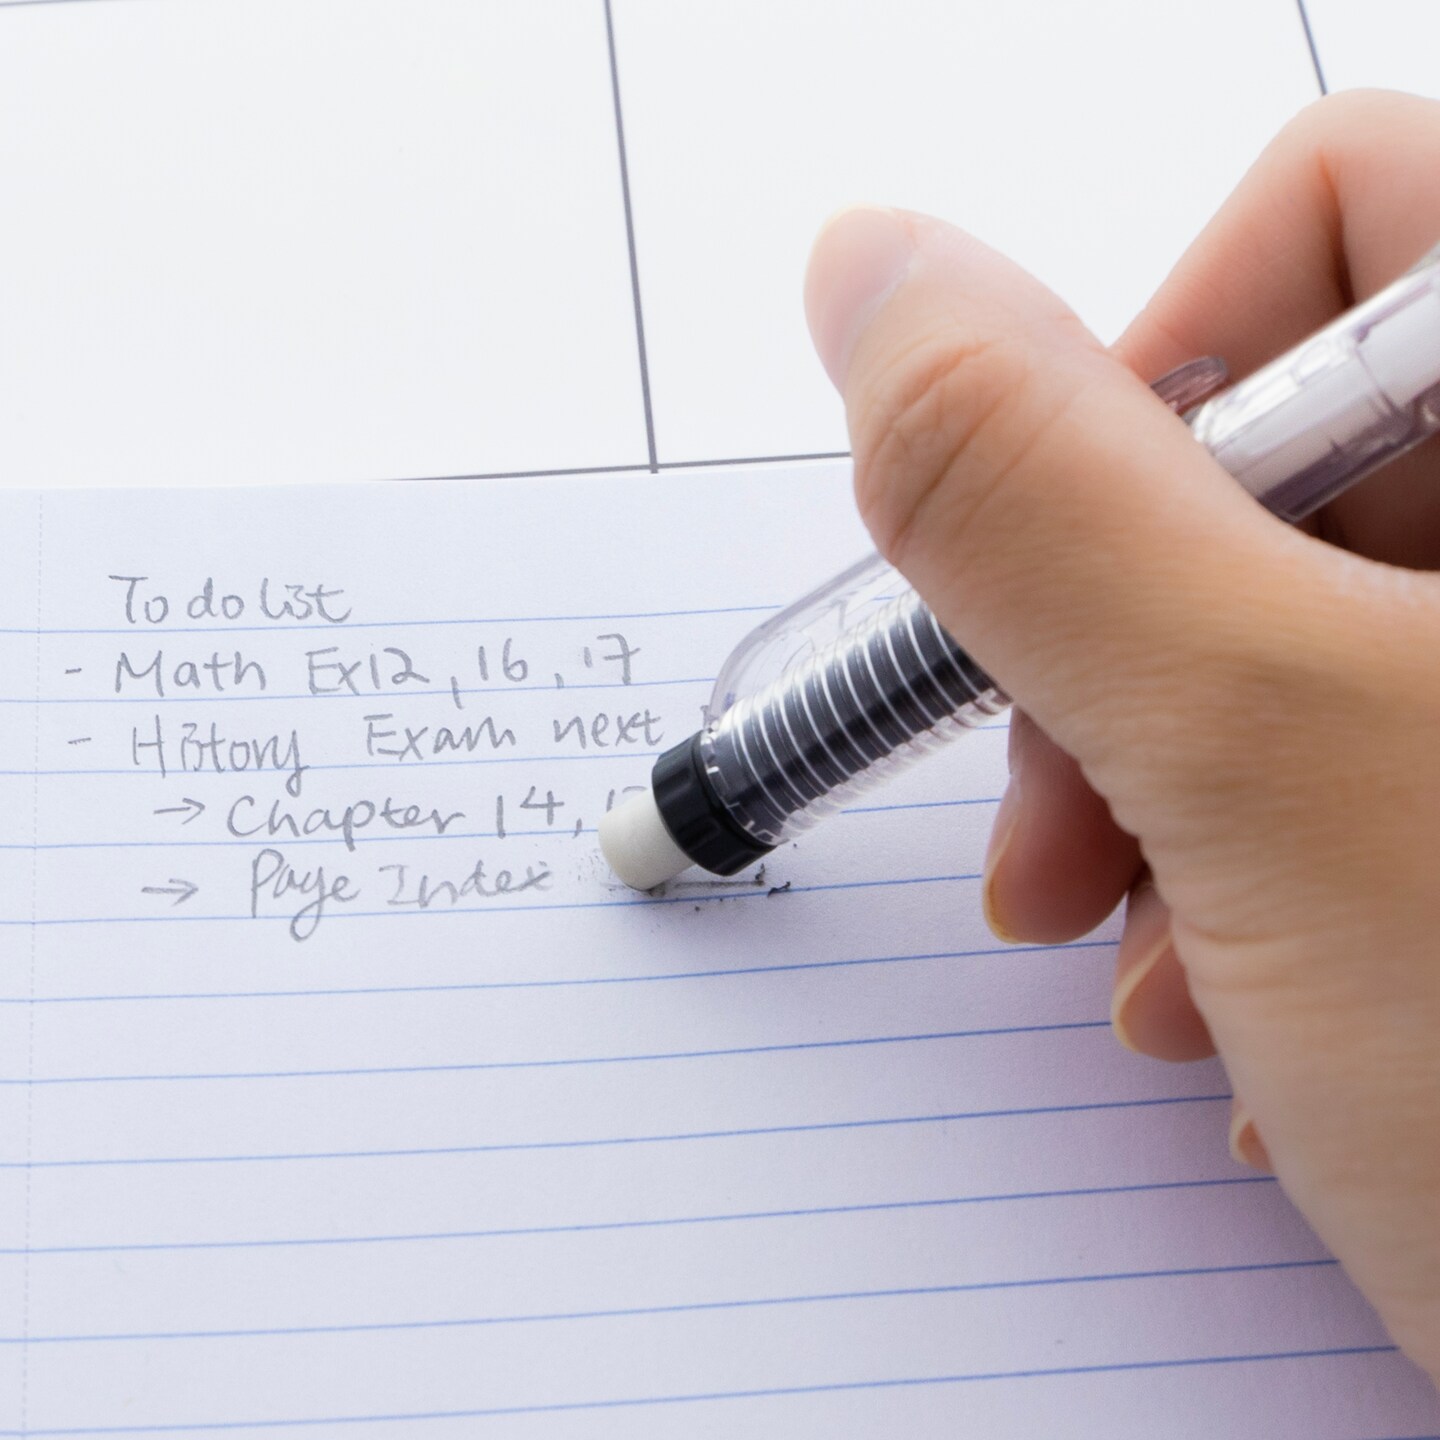 To do list
- Math Ex12, 16, 17
- History Exam next
→ Chapter 14,
→ Page Index